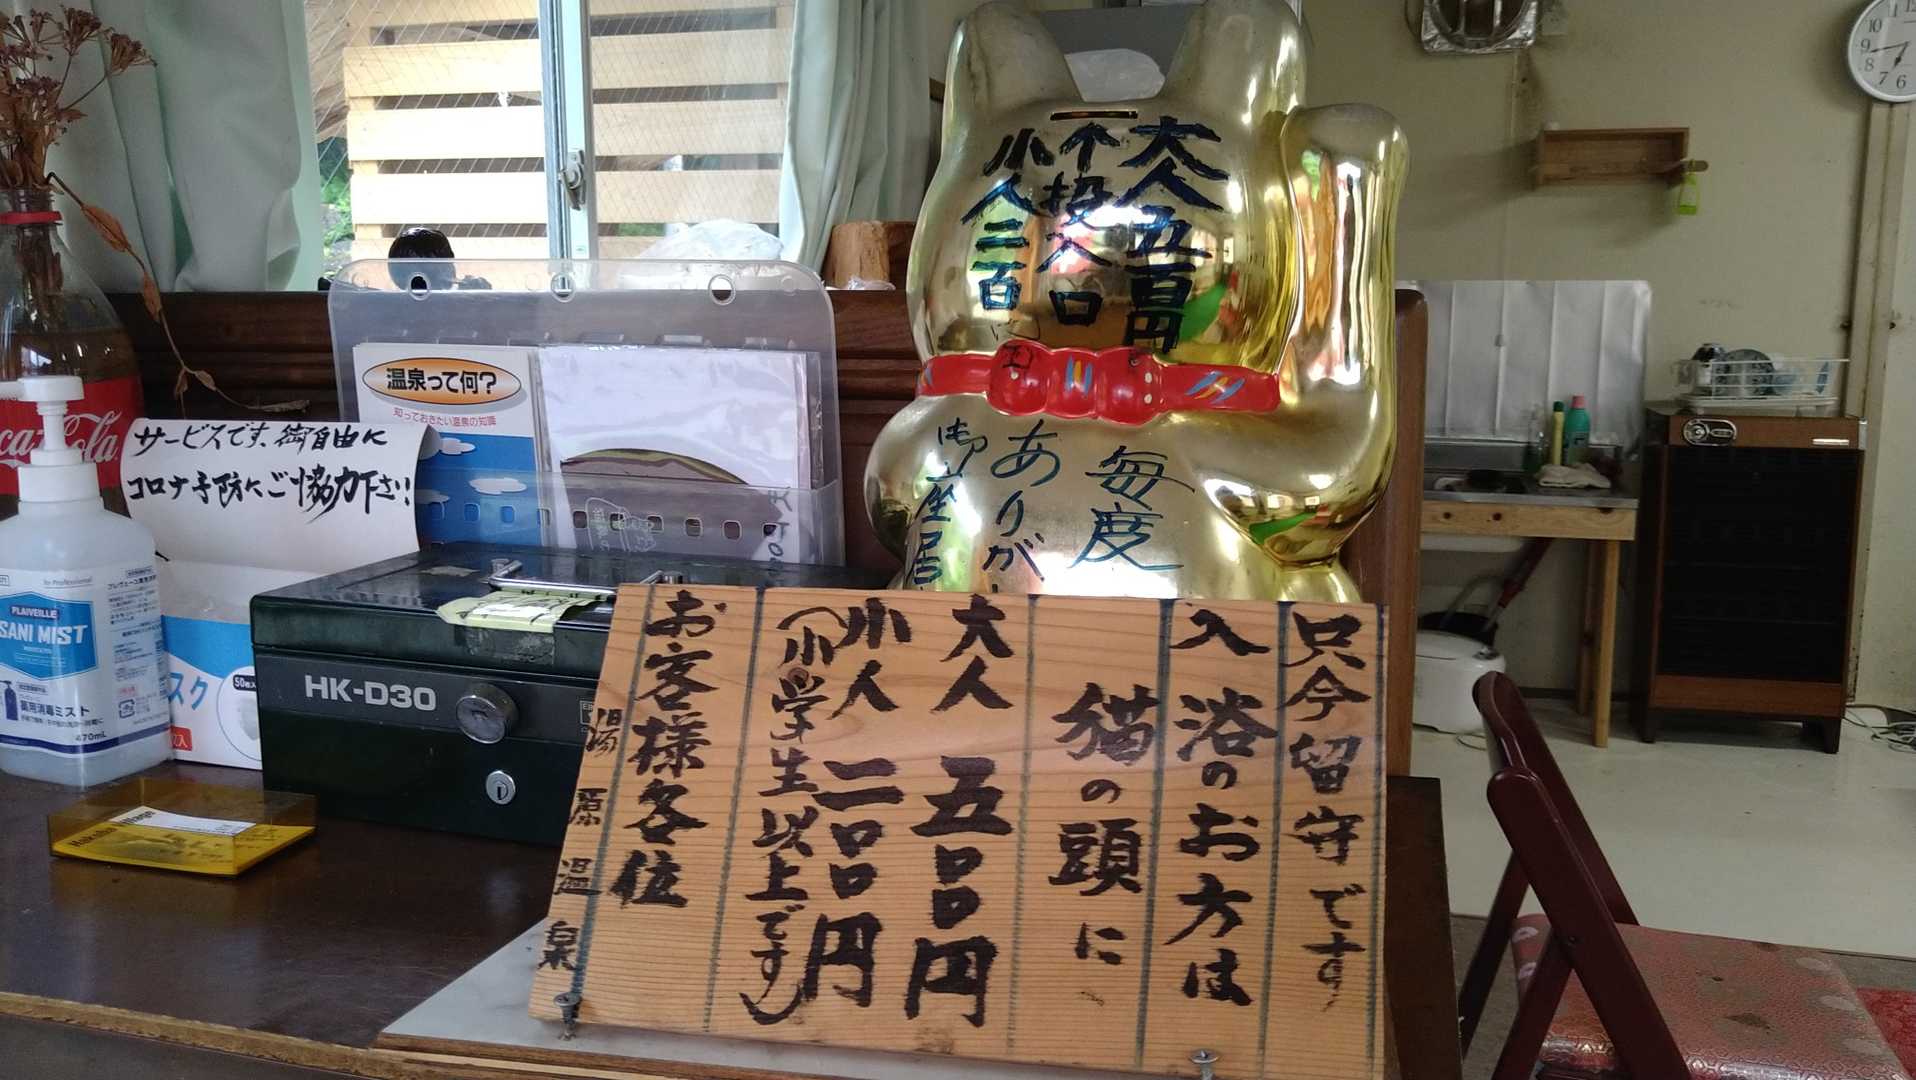 大人五百円
↑投入口
小人二百
毎度
ありが
御座居
只今留守です
入浴のお方は
猫の頭に
大人 五〇〇円
小人 二〇〇円
(小学生以上です)
お客様各位
湯原温泉
サービスです、御自由に
コロナ予防にご協力下さい!
温泉って何?
知っておきたい温泉の知識
HK-D30
Coca-Cola
for Professional
プレヴェーユ
PLAIVEILLE
SANI MIST
薬用消毒ミスト
470mL
スク
50枚入
Hakuba Village
10 11 12
9
8
7 6